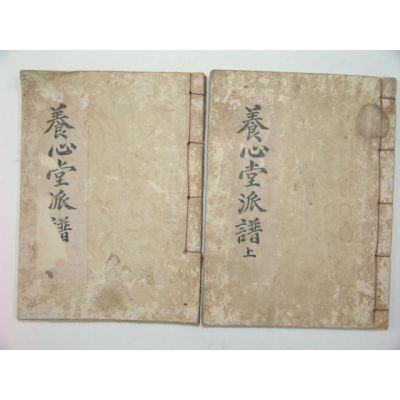 養心堂派譜
上
養心堂派譜